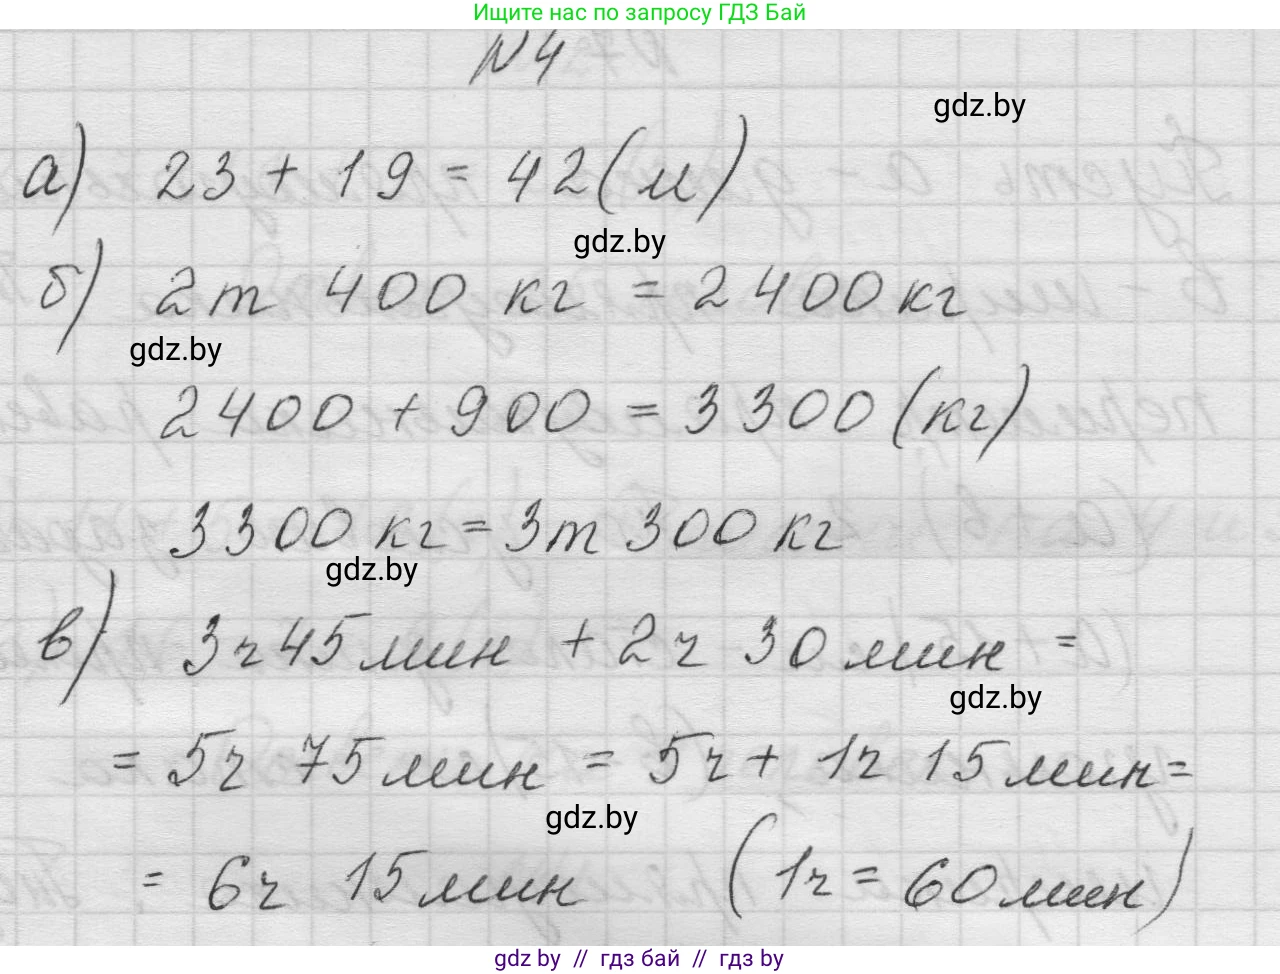 Ищите нас по запросу ГДЗ Бай
N4
gdz.by
а) 23 + 19 = 42 (м)
gdz.by
б) 2т 400 кг = 2400 кг
gdz.by
2400 + 900 = 3300 (кг)
3300 кг = 3т 300 кг
gdz.by
в) 3ч 45 мин + 2ч 30 мин =
gdz.by
= 5ч 75 мин = 5ч + 1ч 15 мин =
gdz.by
= 6ч 15 мин (1ч = 60 мин)
gdz by // гдз бай // гдз by